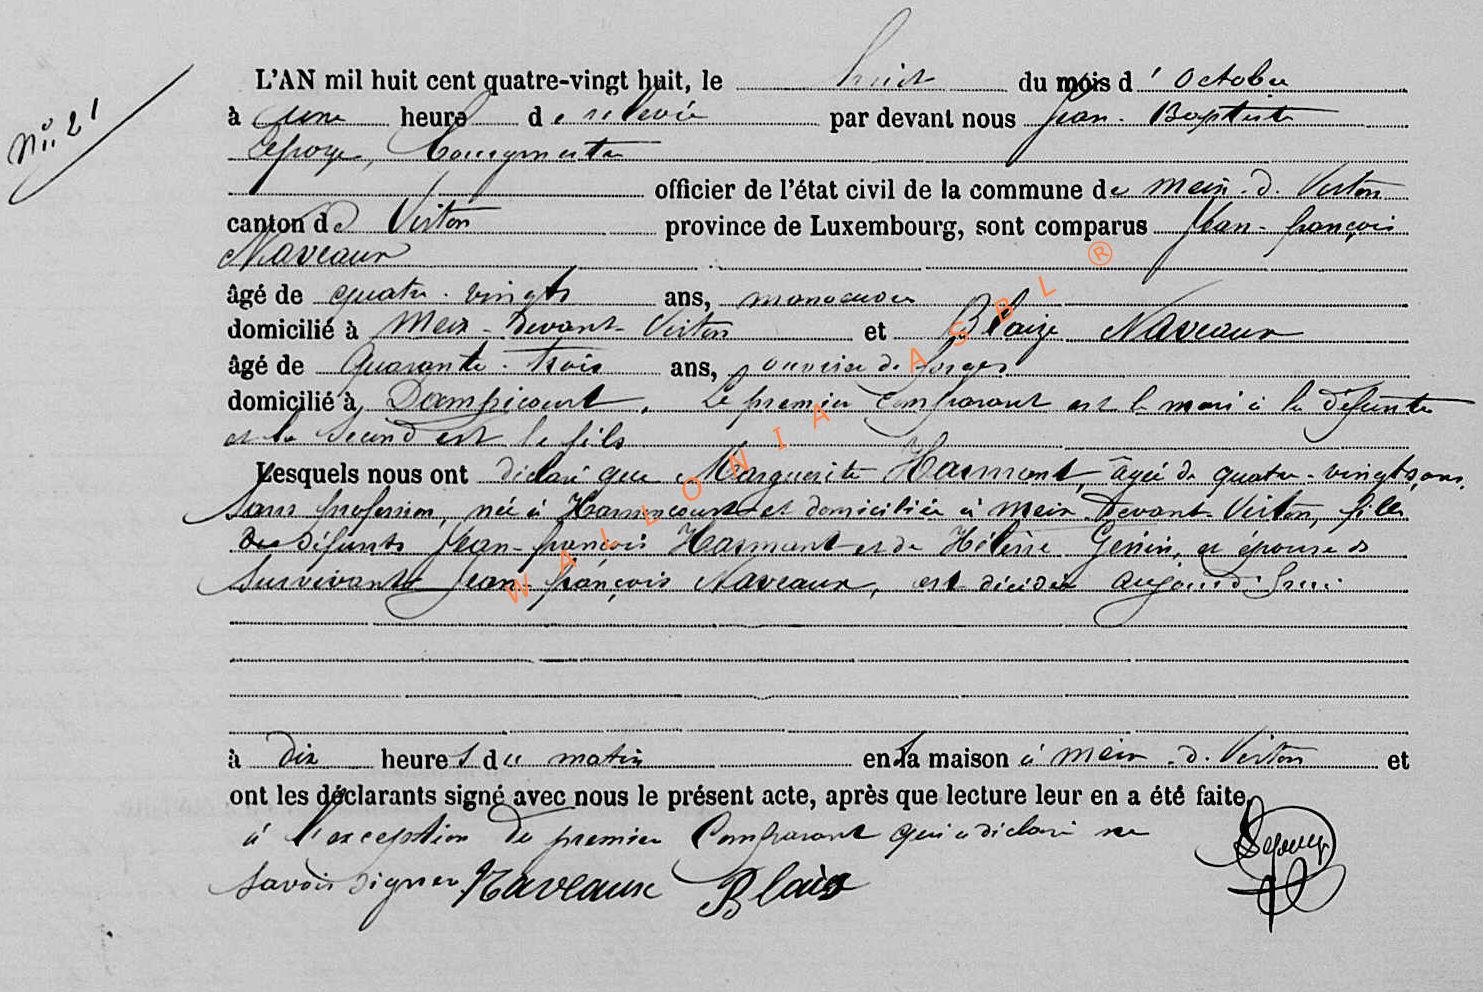 N° 21
L'AN mil huit cent quatre-vingt huit, le huit du mois d' octobre
à une heure de relevée par devant nous Jean-Baptiste
Lepage, Bourgmestre
officier de l'état civil de la commune de Meix-d-Virton
canton de Virton province de Luxembourg, sont comparus Jean-françois
Naveaux
âgé de quatre-vingts ans, manoeuvre
domicilié à Meix-Devant-Virton et Blaize Naveaux
âgé de quarante-trois ans, ouvrier de forges
domicilié à Dampicourt, Le premier comparant est le mari à la défunte
et le second est le fils
Lesquels nous ont déclaré que Marguerite Hasmont, âgée de quatre-vingts ans,
sans profession, née à et domiciliée à Meix-Devant-Virton, fille
des défunts Jean-françois Hasmant et de Hélène et épouse de
survivant Jean-françois Naveaux, est décédée aujourd'hui
à dix heures du matin en sa maison à Meix-d-Virton et
ont les déclarants signé avec nous le présent acte, après que lecture leur en a été faite,
à l'exception du premier comparant qui a déclaré ne
savoir signer Naveaux Blaise
WALLONIA ASBL ®